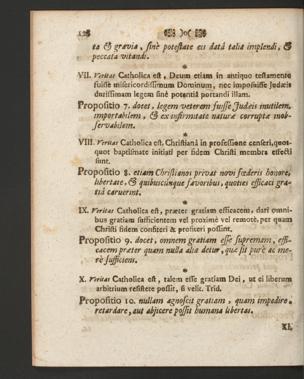 128
ta & gravia, sinè potestate eis datâ talia implendi, &
peccata vitandi.
*
VII. Veritas Catholica est, Deum etiam in antiquo testamento
fuisse misericordissimum Dominum, nec imposuisse Judæis
durissimam legem sinè potentiâ portandi illam.
Propositio 7. docet, legem veterem fuisse Judæis inutilem,
importabilem, & ex infirmitate naturæ corruptæ inob-
servabilem.
*
VIII. Veritas Catholica est, Christianâ in professione censeri, quot-
quot baptismate initiati per fidem Christi membra effecti
sunt.
Propositio 8. etiam Christianos privat novi fœderis honore,
libertate, & quibuscunque favoribus, quoties efficaci gra-
tiâ caruerint.
*
IX. Veritas Catholica est, præter gratiam efficacem, dari omni-
bus gratiam sufficientem vel proximè vel remotè, per quam
Christi fidem consiteri & profiteri possint.
Propositio 9. docet, omnem gratiam esse supremam, effi-
cacem præter quam nulla alia detur, quæ sit purè ac me-
rè sufficiens.
*
X. Veritas Catholica est, talem esse gratiam Dei, ut ei liberum
arbitrium resistere possit, si velit. Trid.
Propositio 10. nullam agnoscit gratiam, quam impedire,
retardare, aut abjicere possit humana libertas.
XI.